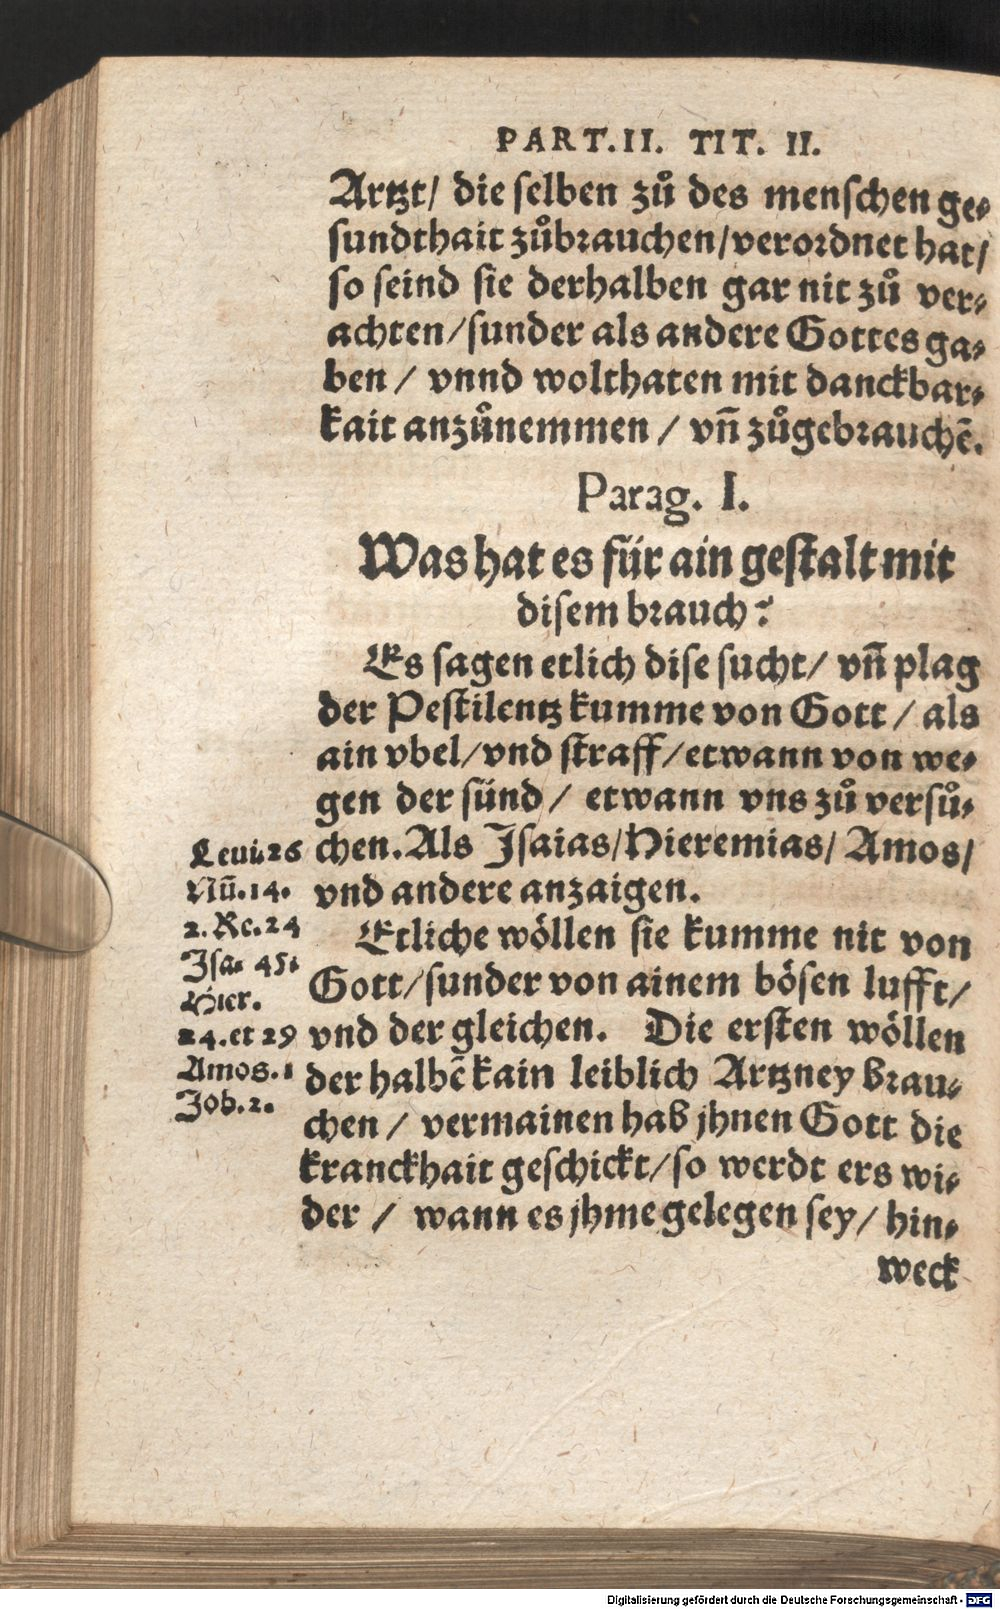 PART. II. TIT. II.
Artzt/ die selben zů des menschen ge⸗
sundthait zůbrauchen/verordnet hat/
so seind sie derhalben gar nit zů ver⸗
achten/sunder als andere Gottes ga⸗
ben / vnnd wolthaten mit danckbar⸗
kait anzůnemmen / vn̄ zůgebrauchē.
Parag. I.
Was hat es für ain gestalt mit
disem brauch?
Es sagen etlich dise sucht/ vn̄ plag
der Pestilentz kumme von Gott / als
ain vbel/vnd straff/etwann von we⸗
gen der sünd/ etwann vns zů versů⸗
chen. Als Isaias/Hieremias/ Amos/
vnd andere anzaigen.
Leui.26
Nū.14.
2. Re.24
Isa. 45.
Hier.
24.et 29
Amos.1
Job.2.
Etliche wöllen sie kumme nit von
Gott/sunder von ainem bösen lufft/
vnd der gleichen. Die ersten wöllen
der halbē kain leiblich Artzney brau⸗
chen / vermainen hab jhnen Gott die
kranckhait geschickt/so werdt ers wi⸗
der / wann es jhme gelegen sey/ hin⸗
weck
Digitalisierung gefördert durch die Deutsche Forschungsgemeinschaft - DFG